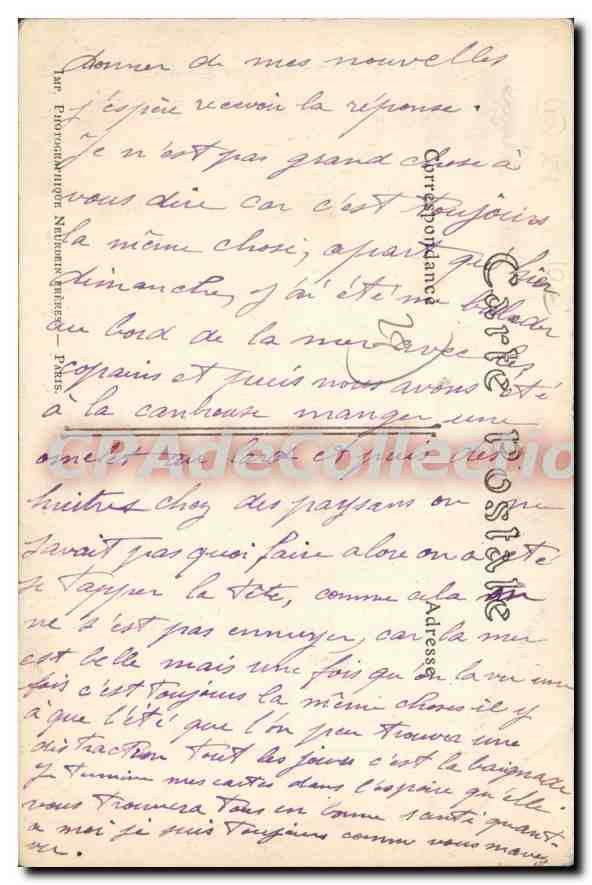 donner de mes nouvelles
j'espère recevoir la réponse.
Je n'est pas grand chose à
vous dire car c'est toujours
la même chose, apart qu'hier
dimanche, j'ai été me ballader
au bord de la mer avec les
copains et puis nous avons été
à la manger une
omelet au lard et puis des
huitres chez des paysans on ne
savait pas quoi faire alors on a été
se tapper la tête, comme cela on
ne s'est pas ennuyer, car la mer
est belle mais une fois qu'on la vu une
fois c'est toujours la même choses il y
à que l'été que l'on peu trouver une
distraction tout les jours c'est la baignade
Je termine mes cartes dans l'espoire qu'elle
vous trouvera tous en bonne santé quant-
a moi je suis toujours comme vous mavez
vu.
Carte Postale
Correspondance
Adresse
Imp. Photographique Neurdein Frères. — Paris.
CPAdeCollection